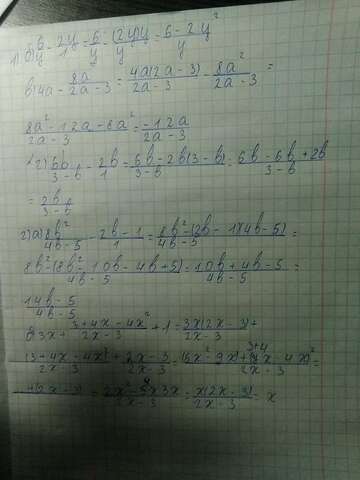 1) б) 6/y - 2y/1 = 6/y - (2y)y/y = 6 - 2y²/y
в) 4a - 8a/2a - 3 = 4a(2a - 3)/2a - 3 - 8a²/2a - 3 =
8a² - 12a - 8a²/2a - 3 = -12a/2a - 3
г) 6b/3 - b - 2b/1 = 6b - 2b(3 - b)/3 - b = 6b - 6b + 2b/3 - b
= 2b/3 - b
2) а) 8b²/4b - 5 - 2b - 1/1 = 8b² - (2b - 1)(4b - 5)/4b - 5 =
8b² - (8b² - 10b - 4b + 5)/4b - 5 = 10b + 4b - 5/4b - 5 =
14b - 5/4b - 5
3x + 3 + 4x - 4x²/2x - 3 + 1 = 3x(2x - 3)/2x - 3 +
(3 + 4x - 4x²)/2x - 3 + 2x - 3/2x - 3 =
x(2x - 3)/2x - 3 = x